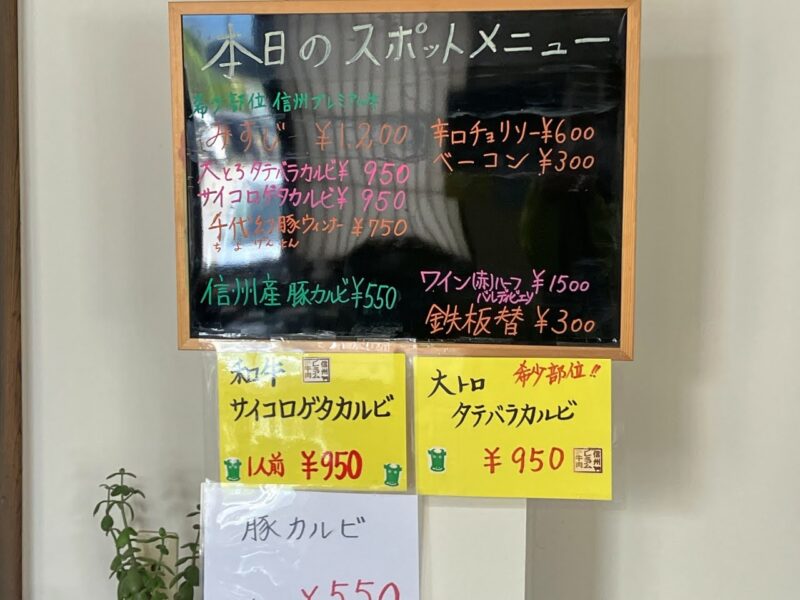 本日のスポットメニュー
希少部位 信州プレミアム牛
みすじ ¥1,200
大とろタテバラカルビ¥ 950
サイコロゲタカルビ¥ 950
千代幻豚ウィンナー ¥750
ちよげんとん
信州産 豚カルビ¥550
辛口チョリソー¥600
ベーコン ¥300
ワイン(赤)ハーフ ¥1500
バルディビエソ
鉄板替 ¥300
和牛
サイコロゲタカルビ
1人前 ¥950
大トロ 希少部位!!
タテバラカルビ
¥950
豚カルビ
¥550